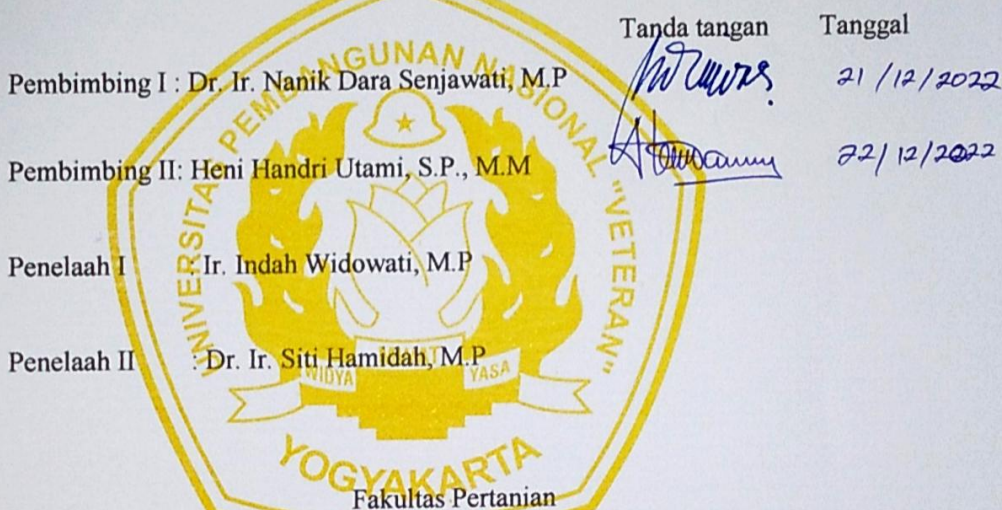 Tanda tangan Tanggal
Pembimbing I : Dr. Ir. Nanik Dara Senjawati, M.P 21/12/2022
Pembimbing II: Heni Handri Utami, S.P., M.M 22/12/2022
Penelaah I : Ir. Indah Widowati, M.P
Penelaah II : Dr. Ir. Siti Hamidah, M.P
Fakultas Pertanian
UNIVERSITAS PEMBANGUNAN NASIONAL "VETERAN"
WIDYA YASA
YOGYAKARTA